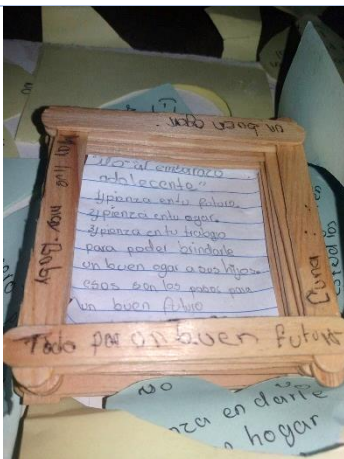 un buen ogar
"No al embarazo
adolecente"
1) pienza en tu futuro.
2) pienza en tu ogar.
3) pienza en tu trabajo
para poder brindarle
un buen ogar a sus hijos
esos son los pasos para
un buen futuro
Cuna
Todo por un buen futuro
No
No
nza en darle
hogar